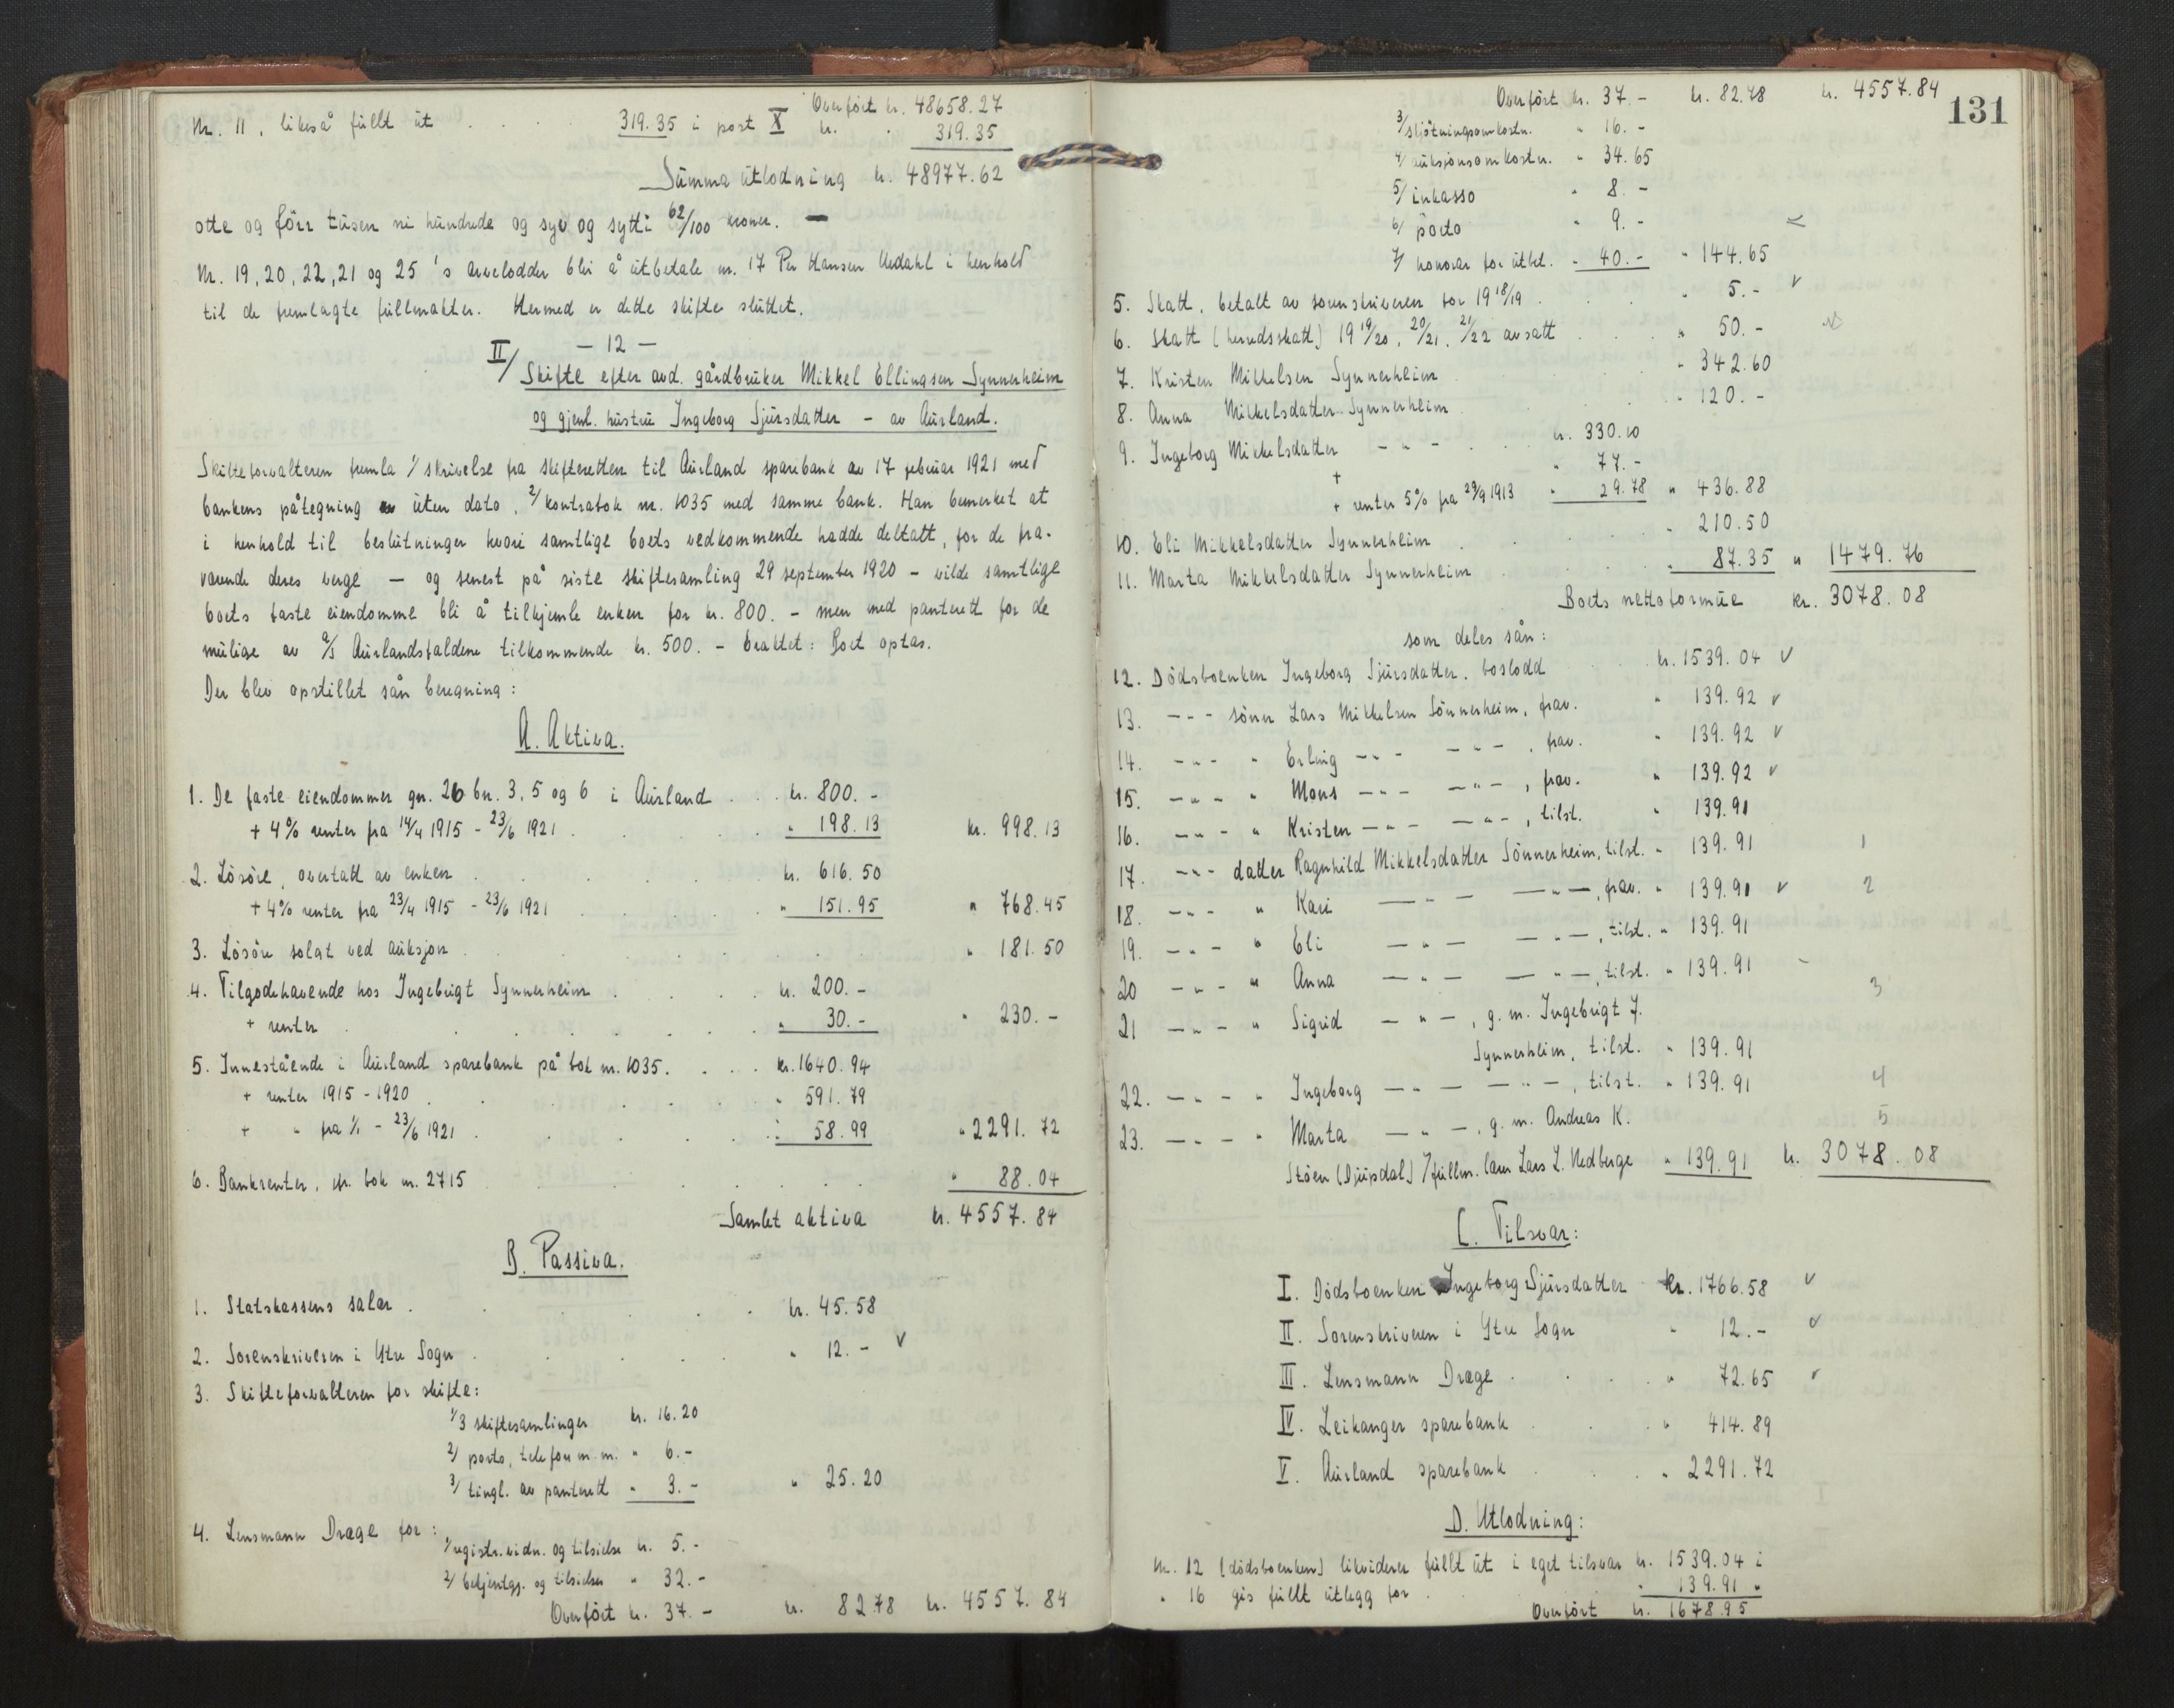 Overført kr. 48658.27
Nr. 11, likeså fullt ut . . . . 319.35 i post X kr. 319.35
Summa utlodning kr. 48977.62
otte og førr tusen ni hundrede og syv og sytti 62/100 kroner. —
Nr. 19, 20, 22, 21 og 25's arvelodder blir å utbetale nr. 17 Per Hansen Uedahl i henhold
til de fremlagte fullmakter. Hermed er dette skifte sluttet.
— 12 —
II/ Skifte efter avd. gårdbruker Mikkel Ellingsen Synnerheim
og gjenl. hustru Ingeborg Sjursdatter – av Aurland.
Skifteforvalteren fremla 1/ skrivelse fra skifteretten til Aurland sparebank av 17 februar 1921 med
bankens påtegning uten dato, 2/ kontrabok nr. 1035 med samme bank. Han bemerket at
i henhold til beslutninger hvori samtlige boets vedkommende hadde deltatt, for de fra-
værende deres verge — og senest på siste skiftesamling 29 september 1920 – vilde samtlige
boets faste eiendomme bli å tilhjemle enken for kr. 800. – men med panterett for de
mulige av A/S Aurlandsfaldene tilkommende kr. 500. – beaktet: Boet optas.
Der blev opstillet sån beregning:
A. Aktiva.
1. De faste eiendommer gn. 26 bn. 3, 5 og 6 i Aurland . . kr. 800. –
+ 4% renter fra 14/4 1915 – 23/6 1921 . " 198.13 kr. 998.13
2. Løsøre, overtatt av enken . kr. 616.50
+ 4% renter fra 23/4 1915 – 23/6 1921 " 151.95 " 768.45
3. Løsøre solgt ved auksjon . " 181.50
4. Tilgodehavende hos Ingebrigt Synnerheim . kr. 200. –
+ renter . " 30. – " 230. –
5. Innestående i Aurland sparebank på bok nr. 1035. . . kr. 1640.94
+ renter 1915 – 1920 . " 591.79
+ " fra 1/1 – 23/6 1921 . " 58.99 " 2291.72
6. Bankrenter, efr. bok nr. 2715 " 88.04
Samlet aktiva kr. 4557.84
B. Passiva.
1. Statskassens salar . kr. 45.58
2. Sorenskriveren i Ytre Sogn . " 12. – v
3. Skifteforvalteren for skifte:
1/ 3 skiftesamlinger kr. 16.20
2/ porto, telefon m.m. " 6. –
3/ tingl. av panterett " 3. – " 25.20
4. Lensmann Drage for:
1/ registr. vidn. og tilsielse kr. 5. –
2/ betjentgj. og tilsielser " 32. –
Overført kr. 37. – kr. 82.78 kr. 4557.84
131
Overført kr. 37. – kr. 82.78 kr. 4557.84
3/ sljøtningsomkostn. " 16. –
4/ auksjonsomkostn. " 34.65
5/ inkasso " 8. –
6/ porto " 9. –
7/ honorar for utbet. " 40. – " 144.65
5. Skatt, betalt av sorenskriveren for 1918/19 . " 5. – v
6. Skatt (herredsskatt) 1919/20, 20/21, 21/22 avsatt . " 50. –
7. Kristen Mikkelsen Synnerheim " 342.60
8. Anna Mikkelsdatter Synnerheim " 120. –
9. Ingeborg Mikkelsdatter – " – . kr. 330.10
+ " 77. –
+ renter 5% fra 29/9 1913 " 29.78 " 436.88
10. Eli Mikkelsdatter Synnerheim . " 210.50
11. Marta Mikkelsdatter Synnerheim . " 87.35 " 1479.76
Boets nettoformue kr. 3078.08
som deles sån:
12. Dødsboenken Ingeborg Sjursdatter, boslodd kr. 1539.04 v
13. – " – sønn Lars Mikkelsen Sønnerheim, frav. " 139.92 v
14. – " – " Erling – " – – " – , frav. " 139.92 v
15. – " – " Mons – " – – " – , frav. " 139.92 v
16. – " – " Kristen – " – – " – , tilst. " 139.91
17. – " – datter Ragnhild Mikkelsdatter Sønnerheim, tilst. " 139.91 1
18. – " – " Kari – " – – " –, frav. " 139.91 v 2
19. – " – " Eli – " – – " –, tilst. " 139.91
20 – " – " Anna – " – – " –, tilst. " 139.91
21 – " – " Sigrid – " – , g. m. Ingebrigt J. 3
Synnerheim, tilst. " 139.91
22. – " – " Ingeborg – " – – " – , tilst. " 139.91 4
23. – " – " Marta – " – , g. m. Andreas K. 5
Støen (Djupsdal) / fullm. laur Lars L. Nedberge " 139.91 kr. 3078.08
C. Tilsvar:
I. Dødsboenken Ingeborg Sjursdatter kr. 1766.58 v
II. Sorenskriveren i Ytre Sogn " 12. – v
III. Lensmann Drage . " 72.65 v
IV. Leikanger sparebank . " 414.89
V. Aurland sparebank . " 2291.72
D. Utlodning:
Nr. 12 (dødsboenken) likviderer fullt ut i eget tilsvar kr. 1539.04 i
" 16 gis fullt utlegg for . " 139.91 "
Overført kr. 1678.95